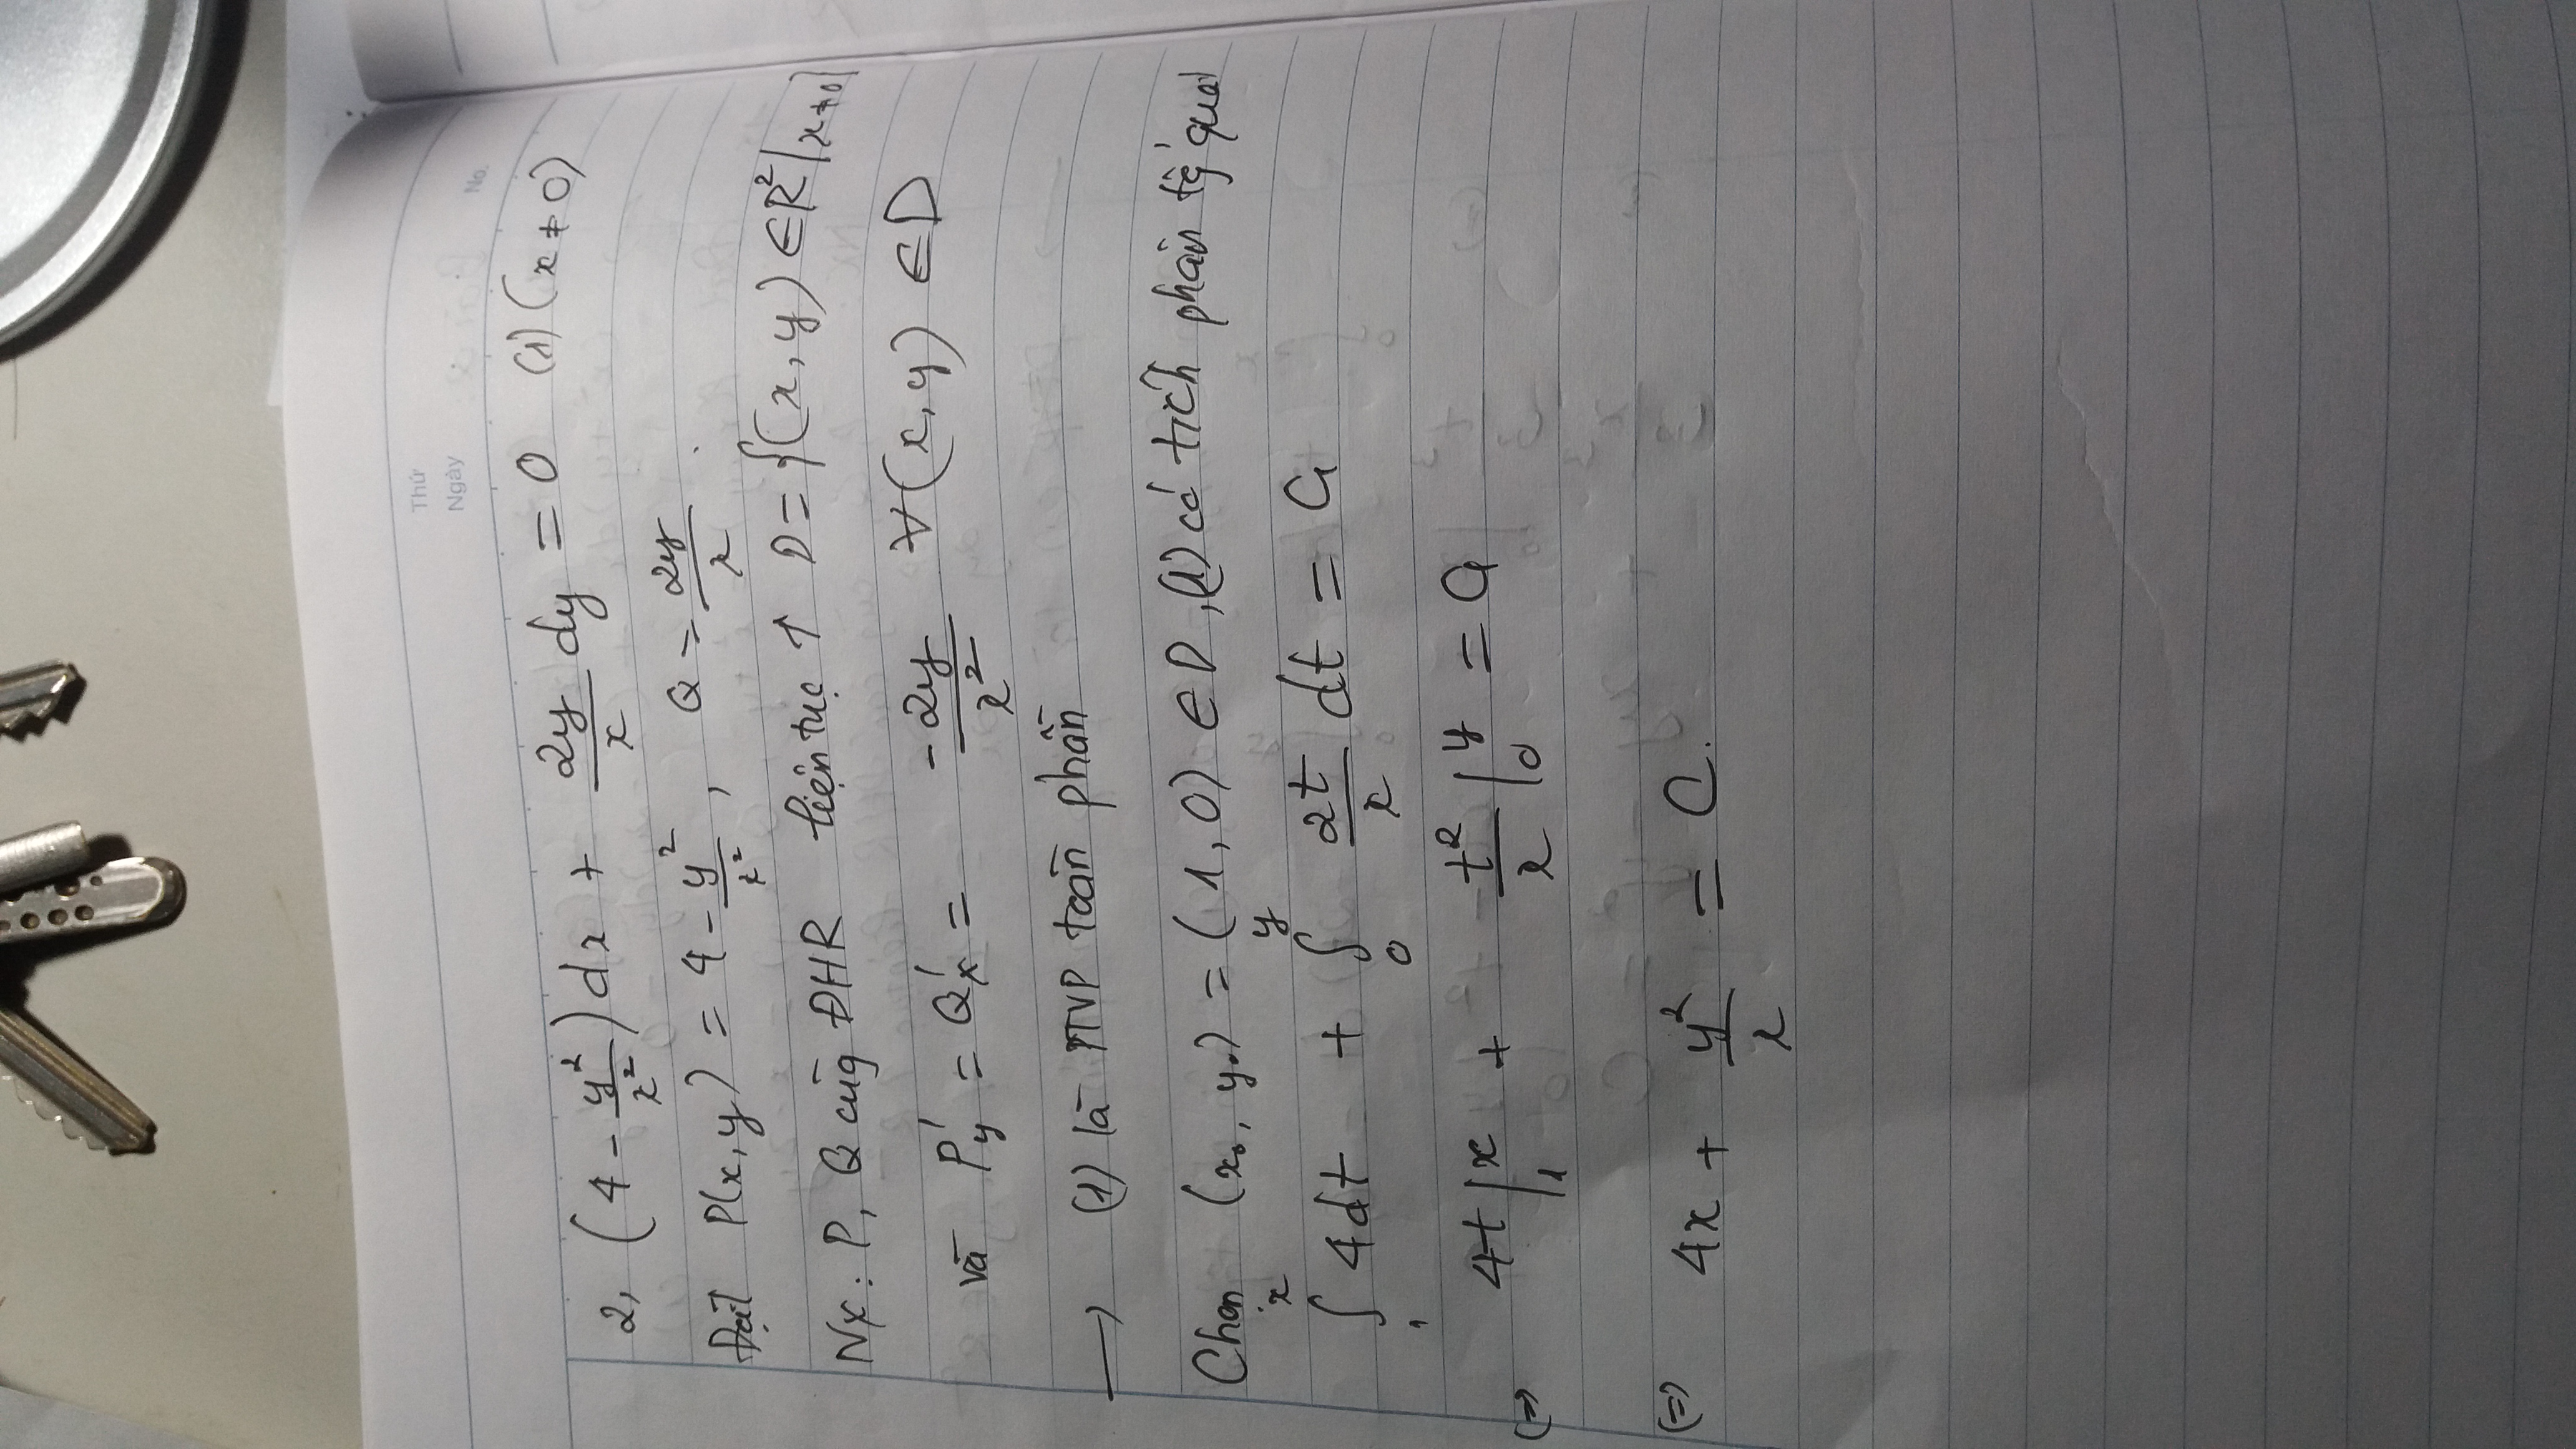 Thứ
Ngày
No.
2, (4 - y²/x²) dx + 2y/x dy = 0 (1) (x ≠ 0)
Đặt P(x, y) = 4 - y²/x², Q = 2y/x.
Nx: P, Q cùng ĐHR liên tục ↑ D = {(x, y) ∈ R² | x ≠ 0}
và P'y = Q'x = -2y/x² ∀(x, y) ∈ D
→ (1) là PTVP toàn phần
Chọn (x₀, y₀) = (1, 0) ∈ D, (1) có tích phân tq quát
∫₁ˣ 4dt + ∫₀ʸ 2t/x dt = C₁
(=) 4t |₁ˣ + t²/x |₀ʸ = C₁
(=) 4x + y²/x = C.